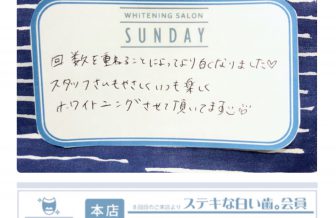 WHITENING SALON
SUNDAY
回数を重ねることによってより白くなりました♡
スタッフさんもやさしくいつも楽しく
ホワイトニングさせて頂いてます☺
本店
8回目のご来店より ステキな白い歯。会員